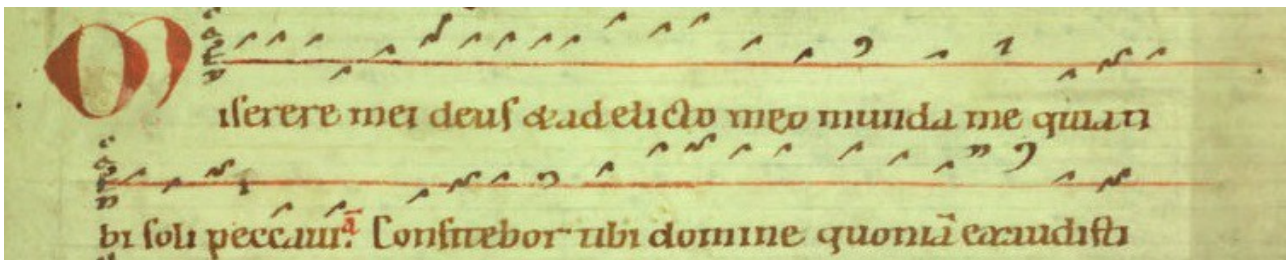 Miserere mei deus & a delicto meo munda me quia ti
bi soli peccaui. ā Confitebor tibi domine quoniā exaudisti